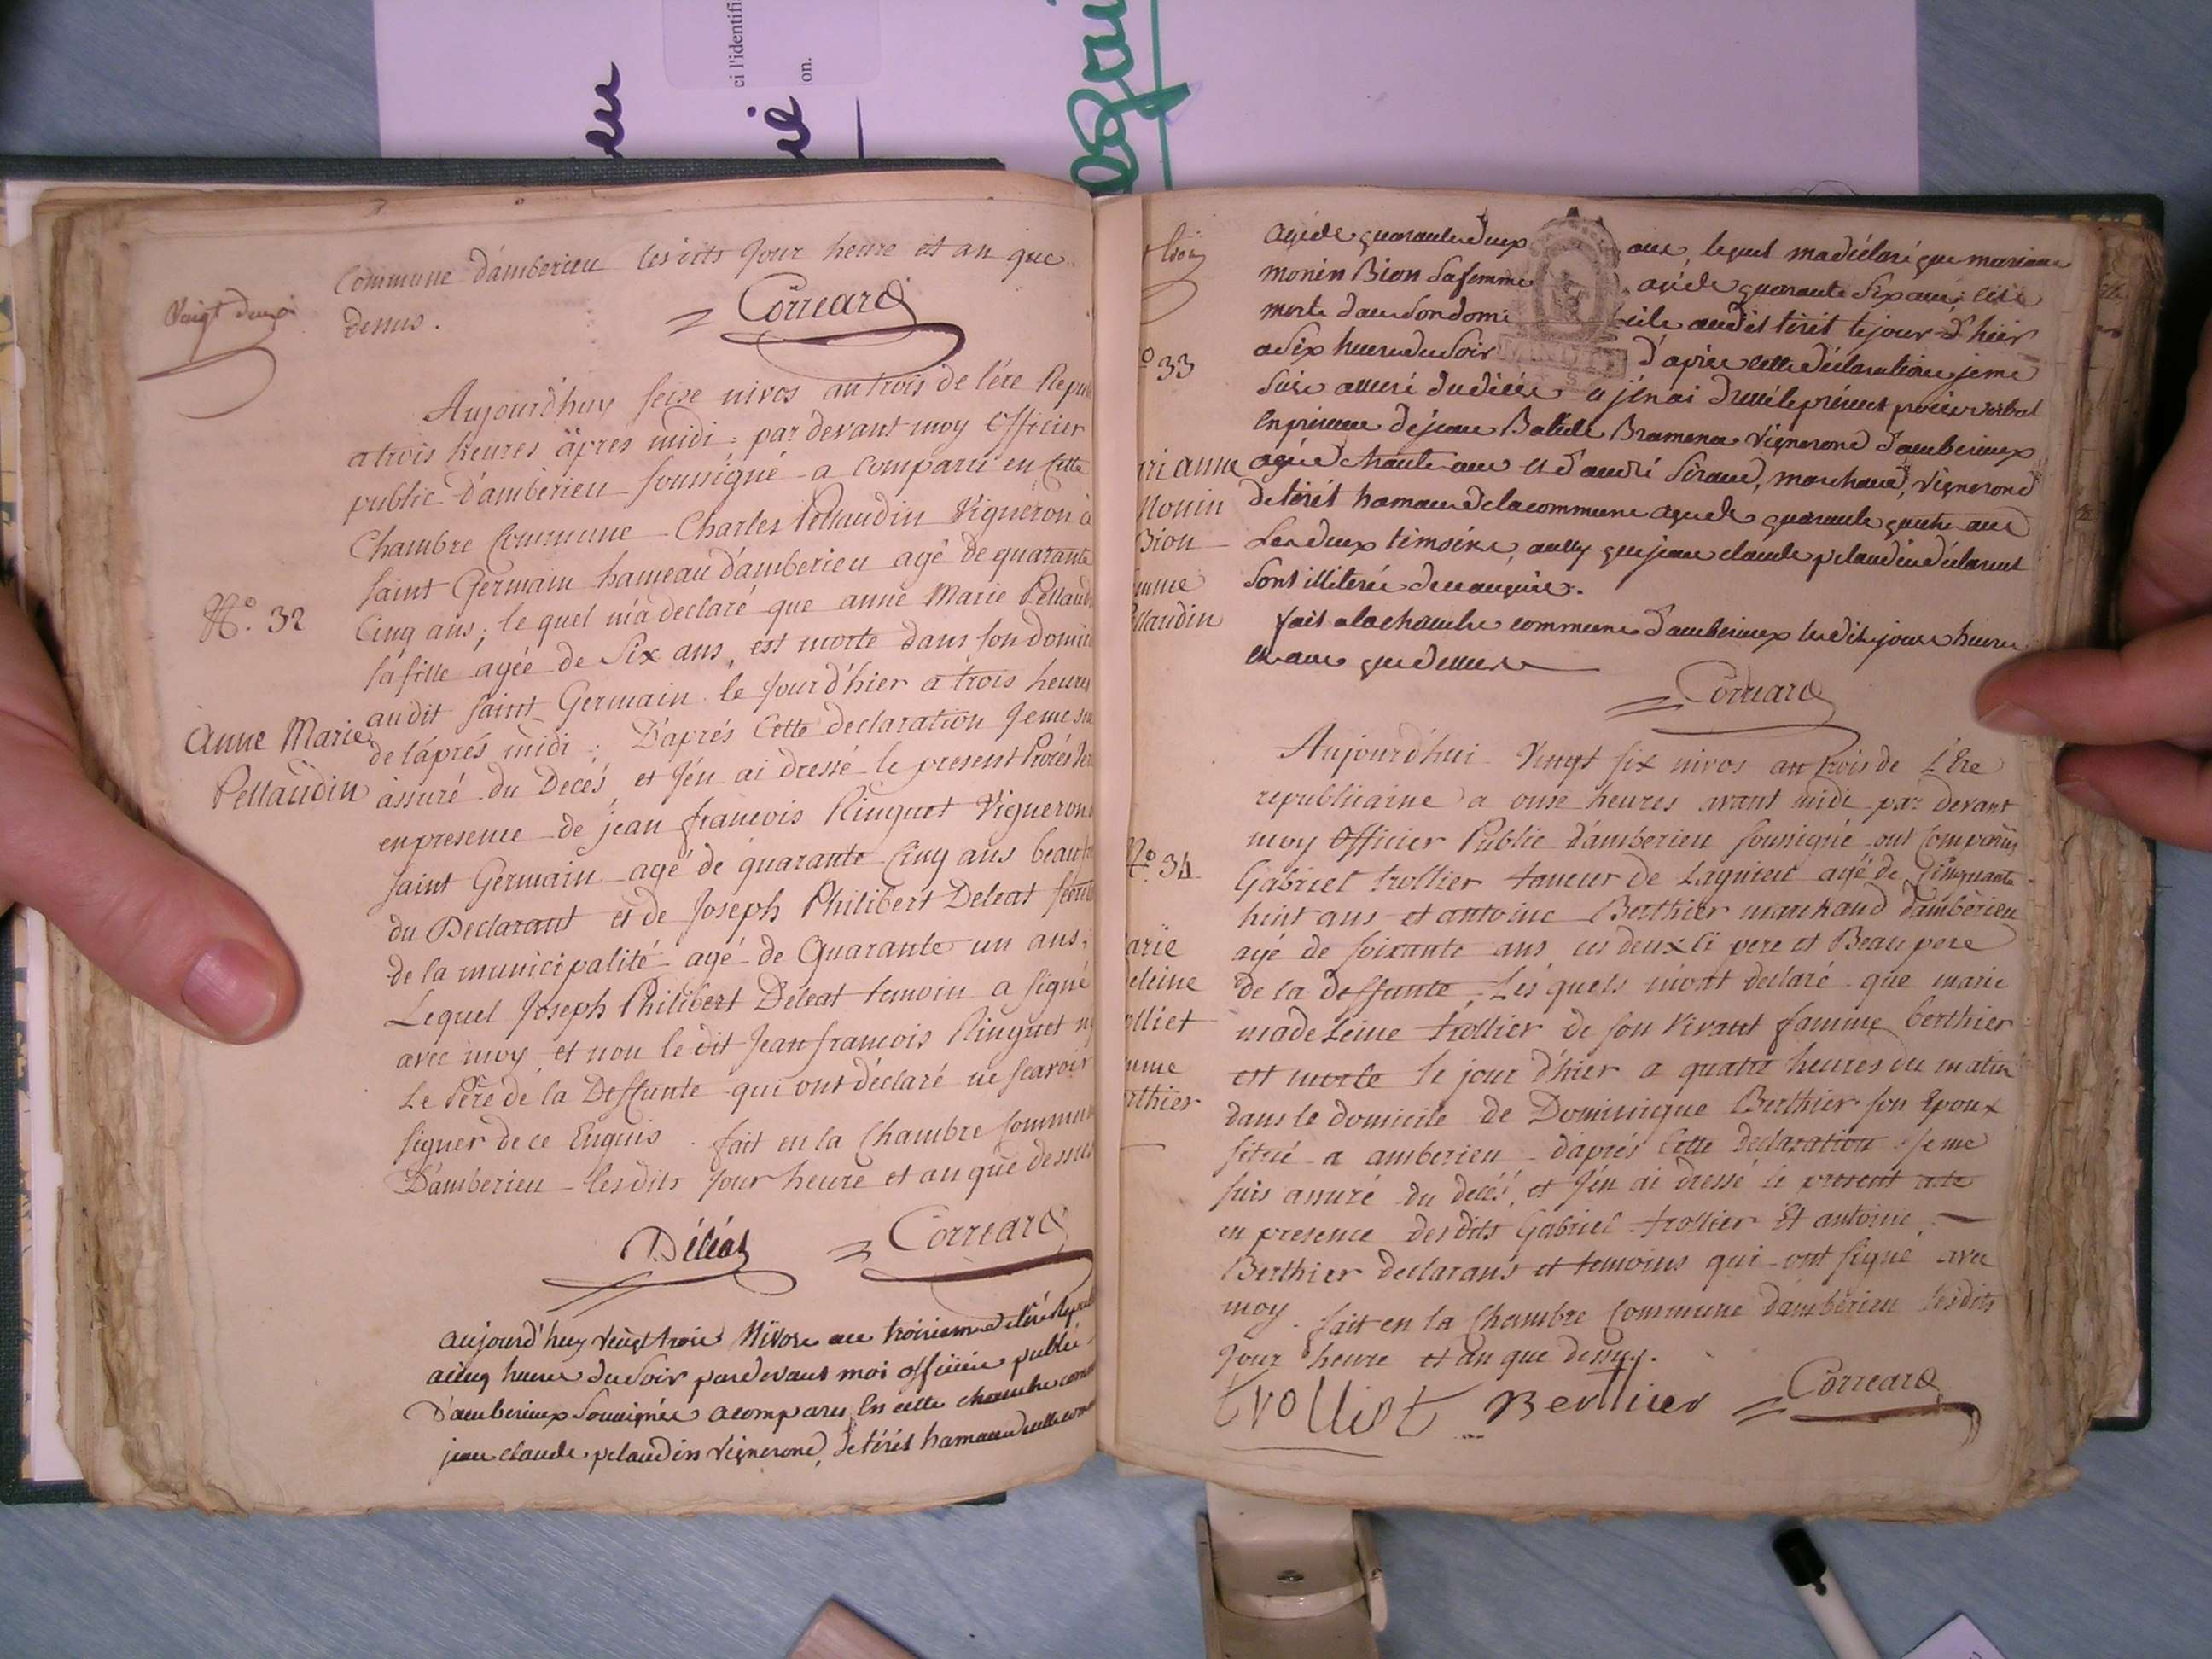 ci l'identifi
on.
Vingt deux
Commune d'amberieu les dits Jour heure et an que
dessus.
Correard
Aujourd'huy seise nivos an trois de l'ére Repu
a trois heures äpres midi : par devant moy Officier
public d'amberieu soussigné a comparu en Cette
Chambre Commune Charles Pellaudin Vigneron à
saint Germain hameau d'amberieu agé de quarante
Cinq ans ; le quel m'a declaré que anne Marie Pellaud
sa fille agée de Six ans, est morte dans son domici
au dit saint Germain le Jour d'hier a trois heures
de l'áprés midi ; D'aprés Cette declaration Jeme sui
assuré du Decés et J'en ai dressé le present Procés Ver
en presence de jean francois Ringuet Vigneron
saint Germain agé de quarante Cinq ans beau fr
du Declarant et de Joseph Philibert Deleat
de la municipalité agé de Quarante un ans ;
Lequel Joseph Philibert Deleat temoin a signé
avec moy et non le dit Jean francois Ringuet n
Le Pere de la Deffunte qui ont déclaré ne scavoir
signer de ce Enquis . fait en la Chambre Commun
D'amberieu les dits Jour heure et an que dessus
N.o 32
Anne Marie
Pellaudin
Déléat
Correard
aujourd'huy vingt trois Nivose an troisieme
a cinq heures du soir pardevant moi officier public
D'amberieux soussigné a comparu En cette chambre com
jean claude pelaudin vigneron, de tirét hameau de
agé de quarante deux ans, lequel ma déclaré que mariane
monin Bion sa femme agé de quarante six ans
morte dans son domicile audit tirét le jour d'hier
a six heures du soir d'aprés cette déclaration je me
suis assuré du décés et j'en ai dressé le présent procés verbal
En présence de jean Batiste Bramena vignerond d'amberieux
agé de trante ans et d'andré Siraud, marchand, vignerond
de tirét hameau de la commune agé de quarante quatre ans
Les deux témoins, aussy que jean claude pelaudin déclarent
sont illiterés de ce anquis.
fait a la chambre commune d'amberieux les dits jour heure
et an que dessus
Correard
o 33
ri anne
Monin
Bion
mme
llaudin
Aujourd'hui Vingt six nivos an trois de l'Ere
republicaine a onse heures avant midi par devant
moy Officier Public d'amberieu soussigné ont Comparus
Gabriel trollier taneur de Lagnieu agé de Cinquante
huit ans et antoine Berthier marchand d'amberieu
agé de soixante ans, ces deux Ci pere et Beau pere
de la deffunte, Lés quels m'ont declaré que marie
madeleine trollier de son Vivant famme berthier
est morte le jour d'hier a quatre heures du matin
dans le domicile de Dominique Berthier son Epoux
situé a amberieu d'aprés Cette declaration Je me
suis assuré du decés, et J'en ai dressé le present acte
en presence desdits Gabriel trollier Et antoine
Berthier declarans et temoins qui ont signé avec
moy . fait en la Chambre Commune d'amberieu les dits
Jour heure et an que dessus.
N.o 34
arie
eleine
lliet
mme
rthier
trolliet Berthier Correard